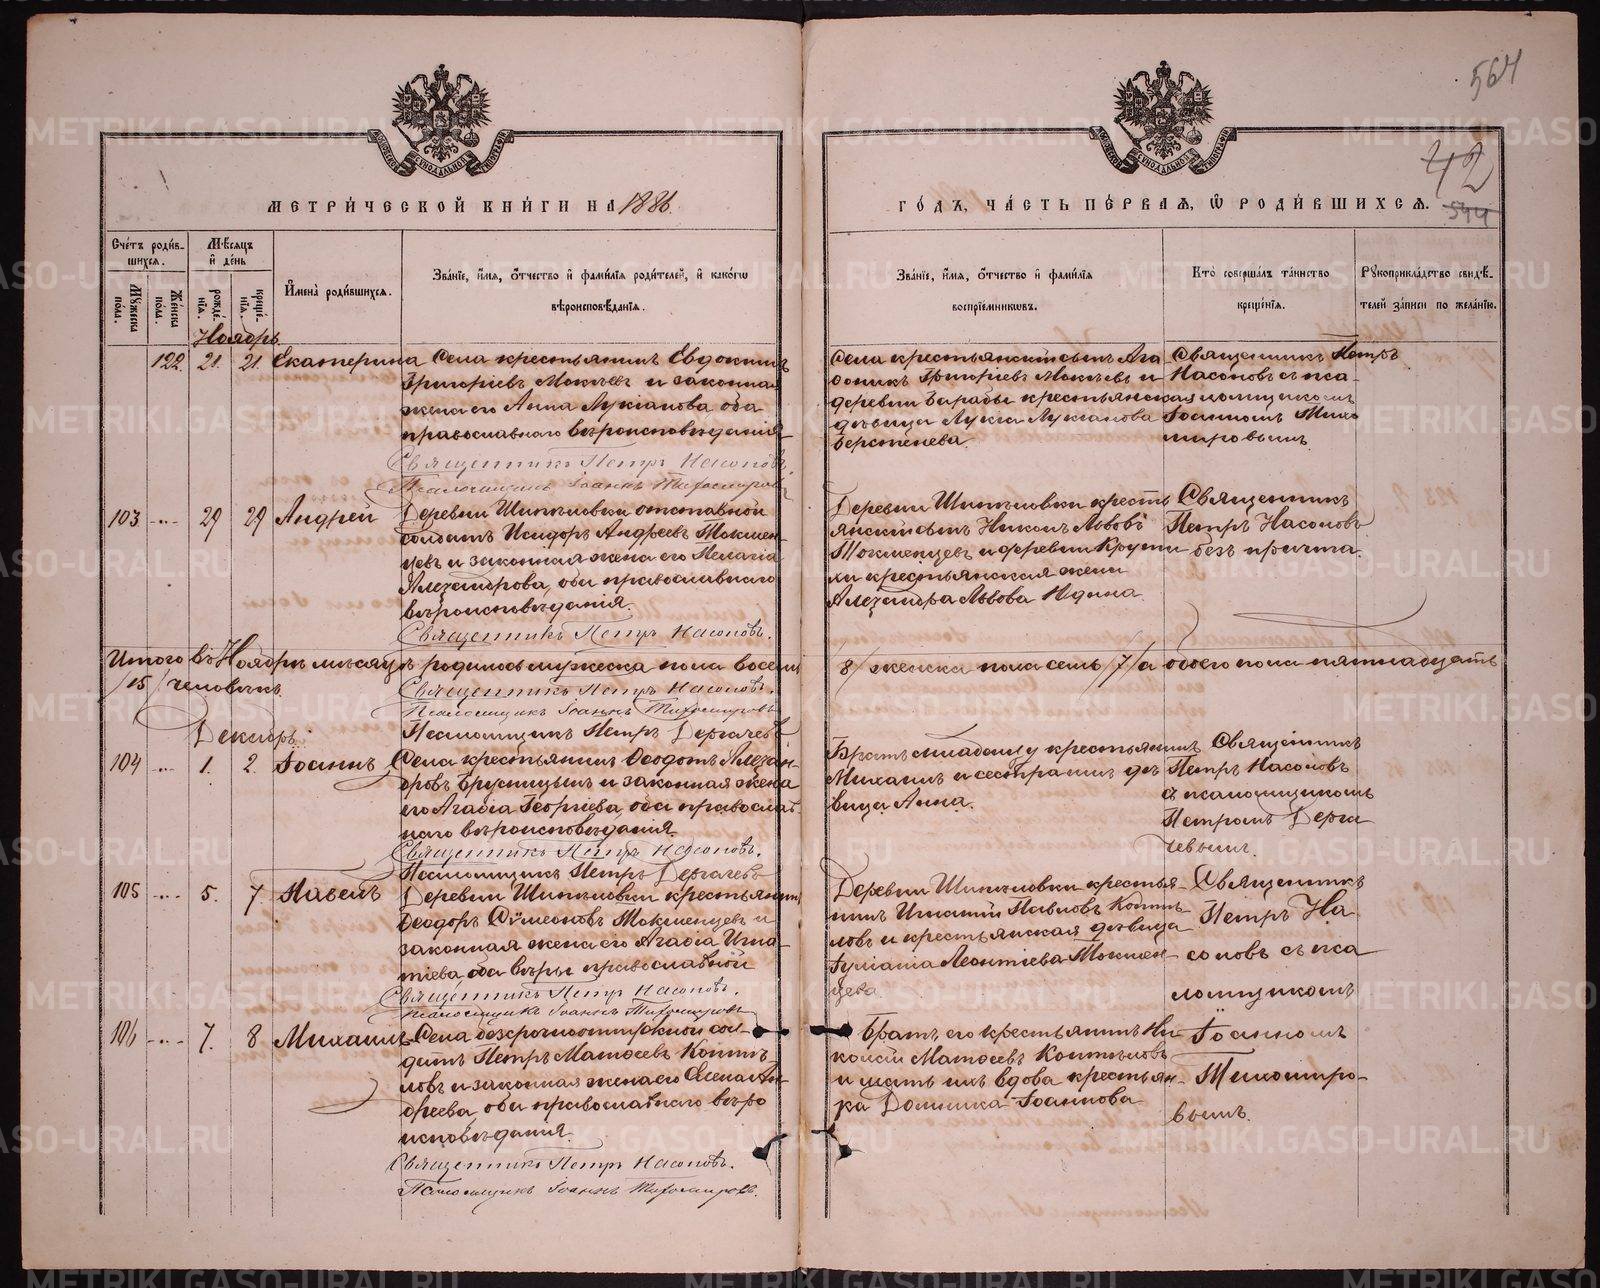 564
42
544
МЕТРИ́ЧЕСКОЙ КНИ́ГИ НА 1886
ГО́ДЪ, ЧА́СТЬ ПЕ́РВАЯ, Ѡ РОДИ́ВШИХСЯ.
Счётъ роди́вшихся.
Му́жеска по́ла.
Же́нска по́ла.
Мѣ́сяцъ и де́нь
рожде́нїѧ.
креще́нїѧ.
И҆мена̀ роди́вшихся.
Зва́нїе, и҆́мя, ѻ҆́тчество и҆ фами́лїя роди́телей, и҆ како́гѡ
вѣроисповѣ́данїя.
Зва́нїе, и҆́мя, ѻ҆́тчество и҆ фами́лїя
воспрїе́мникѡвъ.
Кто̀ соверша́лъ та́инство
креще́нїя.
Рꙋкоприкла́дство свидѣ́-
телей за́писи по жела́нїю.
Ноябрь
122. 21. 21. Екатерина
Села крестьянинъ Евдокимъ
Григорiевъ Мокѣевъ и законная
жена его Анна Лукiанова оба
православнаго вѣроисповѣданiя
Священникъ Петръ Насоновъ.
Псаломщикъ Iоаннъ Тихомировъ
Села крестьянскiй сынъ
Григорiевъ Мокѣевъ и
деревни Барабы крестьянская
дѣвица Лукiанова
Берстенева
Священникъ Петръ
Насоновъ съ пса-
ломщикомъ
Iоанномъ Тихо
мировымъ
103 - 29 29 Андрей
Деревни Шипѣловки отставной
солдатъ Исидоръ Андреевъ Токмен-
цевъ и законная жена его Пелагiя
Александрова, оба православнаго
вѣроисповѣданiя.
Священникъ Петръ Насоновъ.
Деревни Шипѣловки кресть
янскiй сынъ Никонъ Львовъ
Токменцевъ и деревни Крути
хи крестьянская жена
Александра Львова
Священникъ
Петръ Насоновъ
безъ причта.
Итого въ Ноябрѣ мѣсяцѣ родилось мужеска пола восемь /8/ женска пола семь /7/ а обоего пола пятнадцать
/15/ человѣкъ.
Священникъ Петръ Насоновъ.
Псаломщикъ Iоаннъ Тихомировъ
Псаломщикъ Петръ Дергачевъ
Декабрь
104 - 1. 2. Iоаннъ
Села крестьянинъ Ѳеодотъ Алексан-
дровъ Брусницынъ и законная жена
его Агаѳiя Георгiева, оба православ-
наго вѣроисповѣданiя.
Священникъ Петръ Насоновъ.
Псаломщикъ Петръ Дергачевъ
Братъ младенцу крестьянинъ
Михаилъ и сестра имъ дѣ
вица Анна.
Священникъ
Петръ Насоновъ
съ псаломщикомъ
Петромъ Дерга
чевымъ.
105 - 5. 7. Павелъ
Деревни Шипѣловки крестьянинъ
Ѳеодоръ Сѷмеоновъ Токменцевъ и
законная жена его Агаѳiя Игна-
тiева оба вѣры православной
Священникъ Петръ Насоновъ.
Псаломщикъ Iоаннъ Тихомировъ
Деревни Шипѣловки крестья-
нинъ Игнатiй Павловъ Копты-
ловъ и крестьянская дѣвица
Iулiанiя Леонтiева Токмен-
цева.
Священникъ
Петръ На
соновъ съ пса
ломщикомъ
106 - 7. 8 Михаилъ
Села безсрочноотпускной сол-
датъ Петръ Матѳеевъ Копты-
ловъ и законная жена его Елена Ан-
дреева, оба православнаго вѣро
исповѣданiя.
Священникъ Петръ Насоновъ.
Псаломщикъ Iоаннъ Тихомировъ.
Братъ его крестьянинъ Ни
колай Матѳеевъ Коптыловъ
и мать ихъ вдова крестьян-
ка Домника Iоаннова
Iоанномъ
Тихомиро-
вымъ.